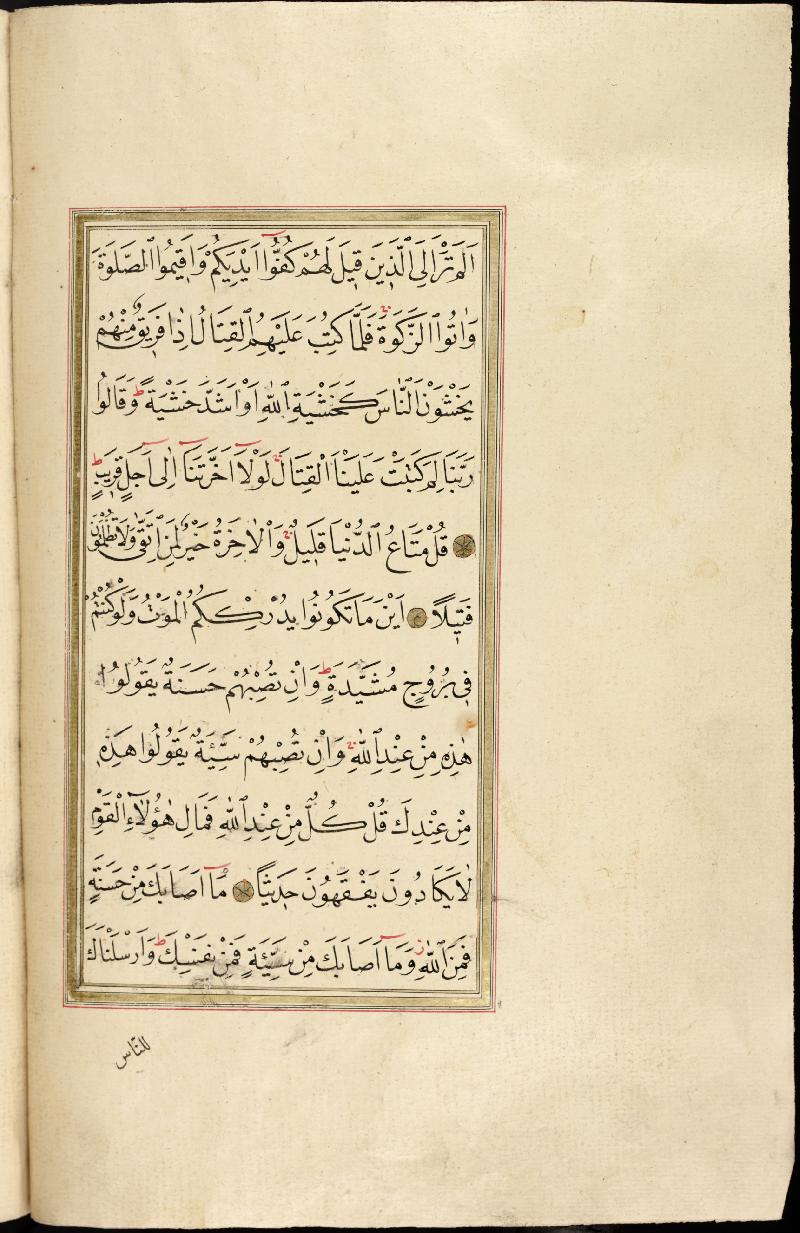 اَلَمْ تَرَ اِلَى الَّذٖينَ قٖيلَ لَهُمْ كُفُّوا اَيْدِيَكُمْ وَاَقٖيمُوا الصَّلٰوةَ
وَاٰتُوا الزَّكٰوةَ ج فَلَمَّا كُتِبَ عَلَيْهِمُ الْقِتَالُ اِذَا فَرٖيقٌ مِنْهُمْ
يَخْشَوْنَ النَّاسَ كَخَشْيَةِ اللّٰهِ اَوْ اَشَدَّ خَشْيَةً ط وَقَالُوا
رَبَّنَا لِمَ كَتَبْتَ عَلَيْنَا الْقِتَالَ ج لَوْلَا اَخَّرْتَنَا اِلٰى اَجَلٍ قَرٖيبٍ ط
قُلْ مَتَاعُ الدُّنْيَا قَلٖيلٌ ج وَالْاٰخِرَةُ خَيْرٌ لِمَنِ اتَّقٰى وَلَا تُظْلَمُونَ
فَتٖيلًا اَيْنَ مَا تَكُونُوا يُدْرِكْكُمُ الْمَوْتُ وَلَوْ كُنْتُمْ
فٖى بُرُوجٍ مُشَيَّدَةٍ ط وَاِنْ تُصِبْهُمْ حَسَنَةٌ يَقُولُوا
هٰذِهٖ مِنْ عِنْدِ اللّٰهِ ج وَاِنْ تُصِبْهُمْ سَيِّئَةٌ يَقُولُوا هٰذِهٖ
مِنْ عِنْدِكَ قُلْ كُلٌّ مِنْ عِنْدِ اللّٰهِ فَمَالِ هٰؤُلَاءِ الْقَوْمِ
لَا يَكَادُونَ يَفْقَهُونَ حَدٖيثًا مَا اَصَابَكَ مِنْ حَسَنَةٍ
فَمِنَ اللّٰهِ ز وَمَا اَصَابَكَ مِنْ سَيِّئَةٍ فَمِنْ نَفْسِكَ ط وَاَرْسَلْنَاكَ
لِلنَّاسِ